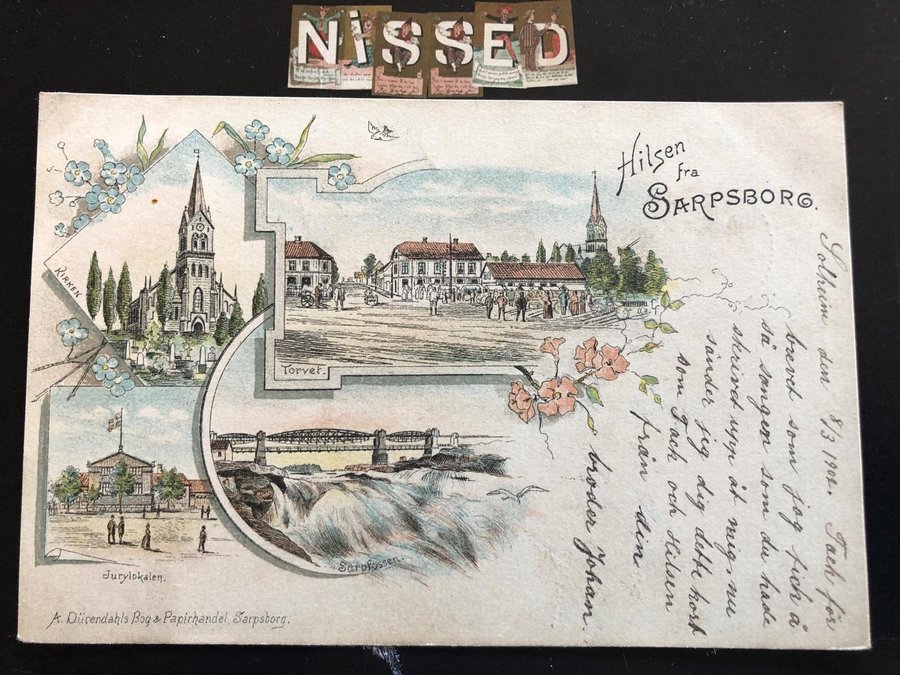 NiSSED
Hilsen
fra
SARPSBORG.
KIRKEN
Torvet.
Sarpfossen.
Jurylokalen.
A. Dürendahls Bog & Papirhandel, Sarpsborg.
Solheim den 8/3 1902. Tack för
brevet som jog fick å
så sangen som du hade
skrivet upp åt meig, nu
sänder jig dig dette kort
som Tack och Hilsen
från din
broder Johan.